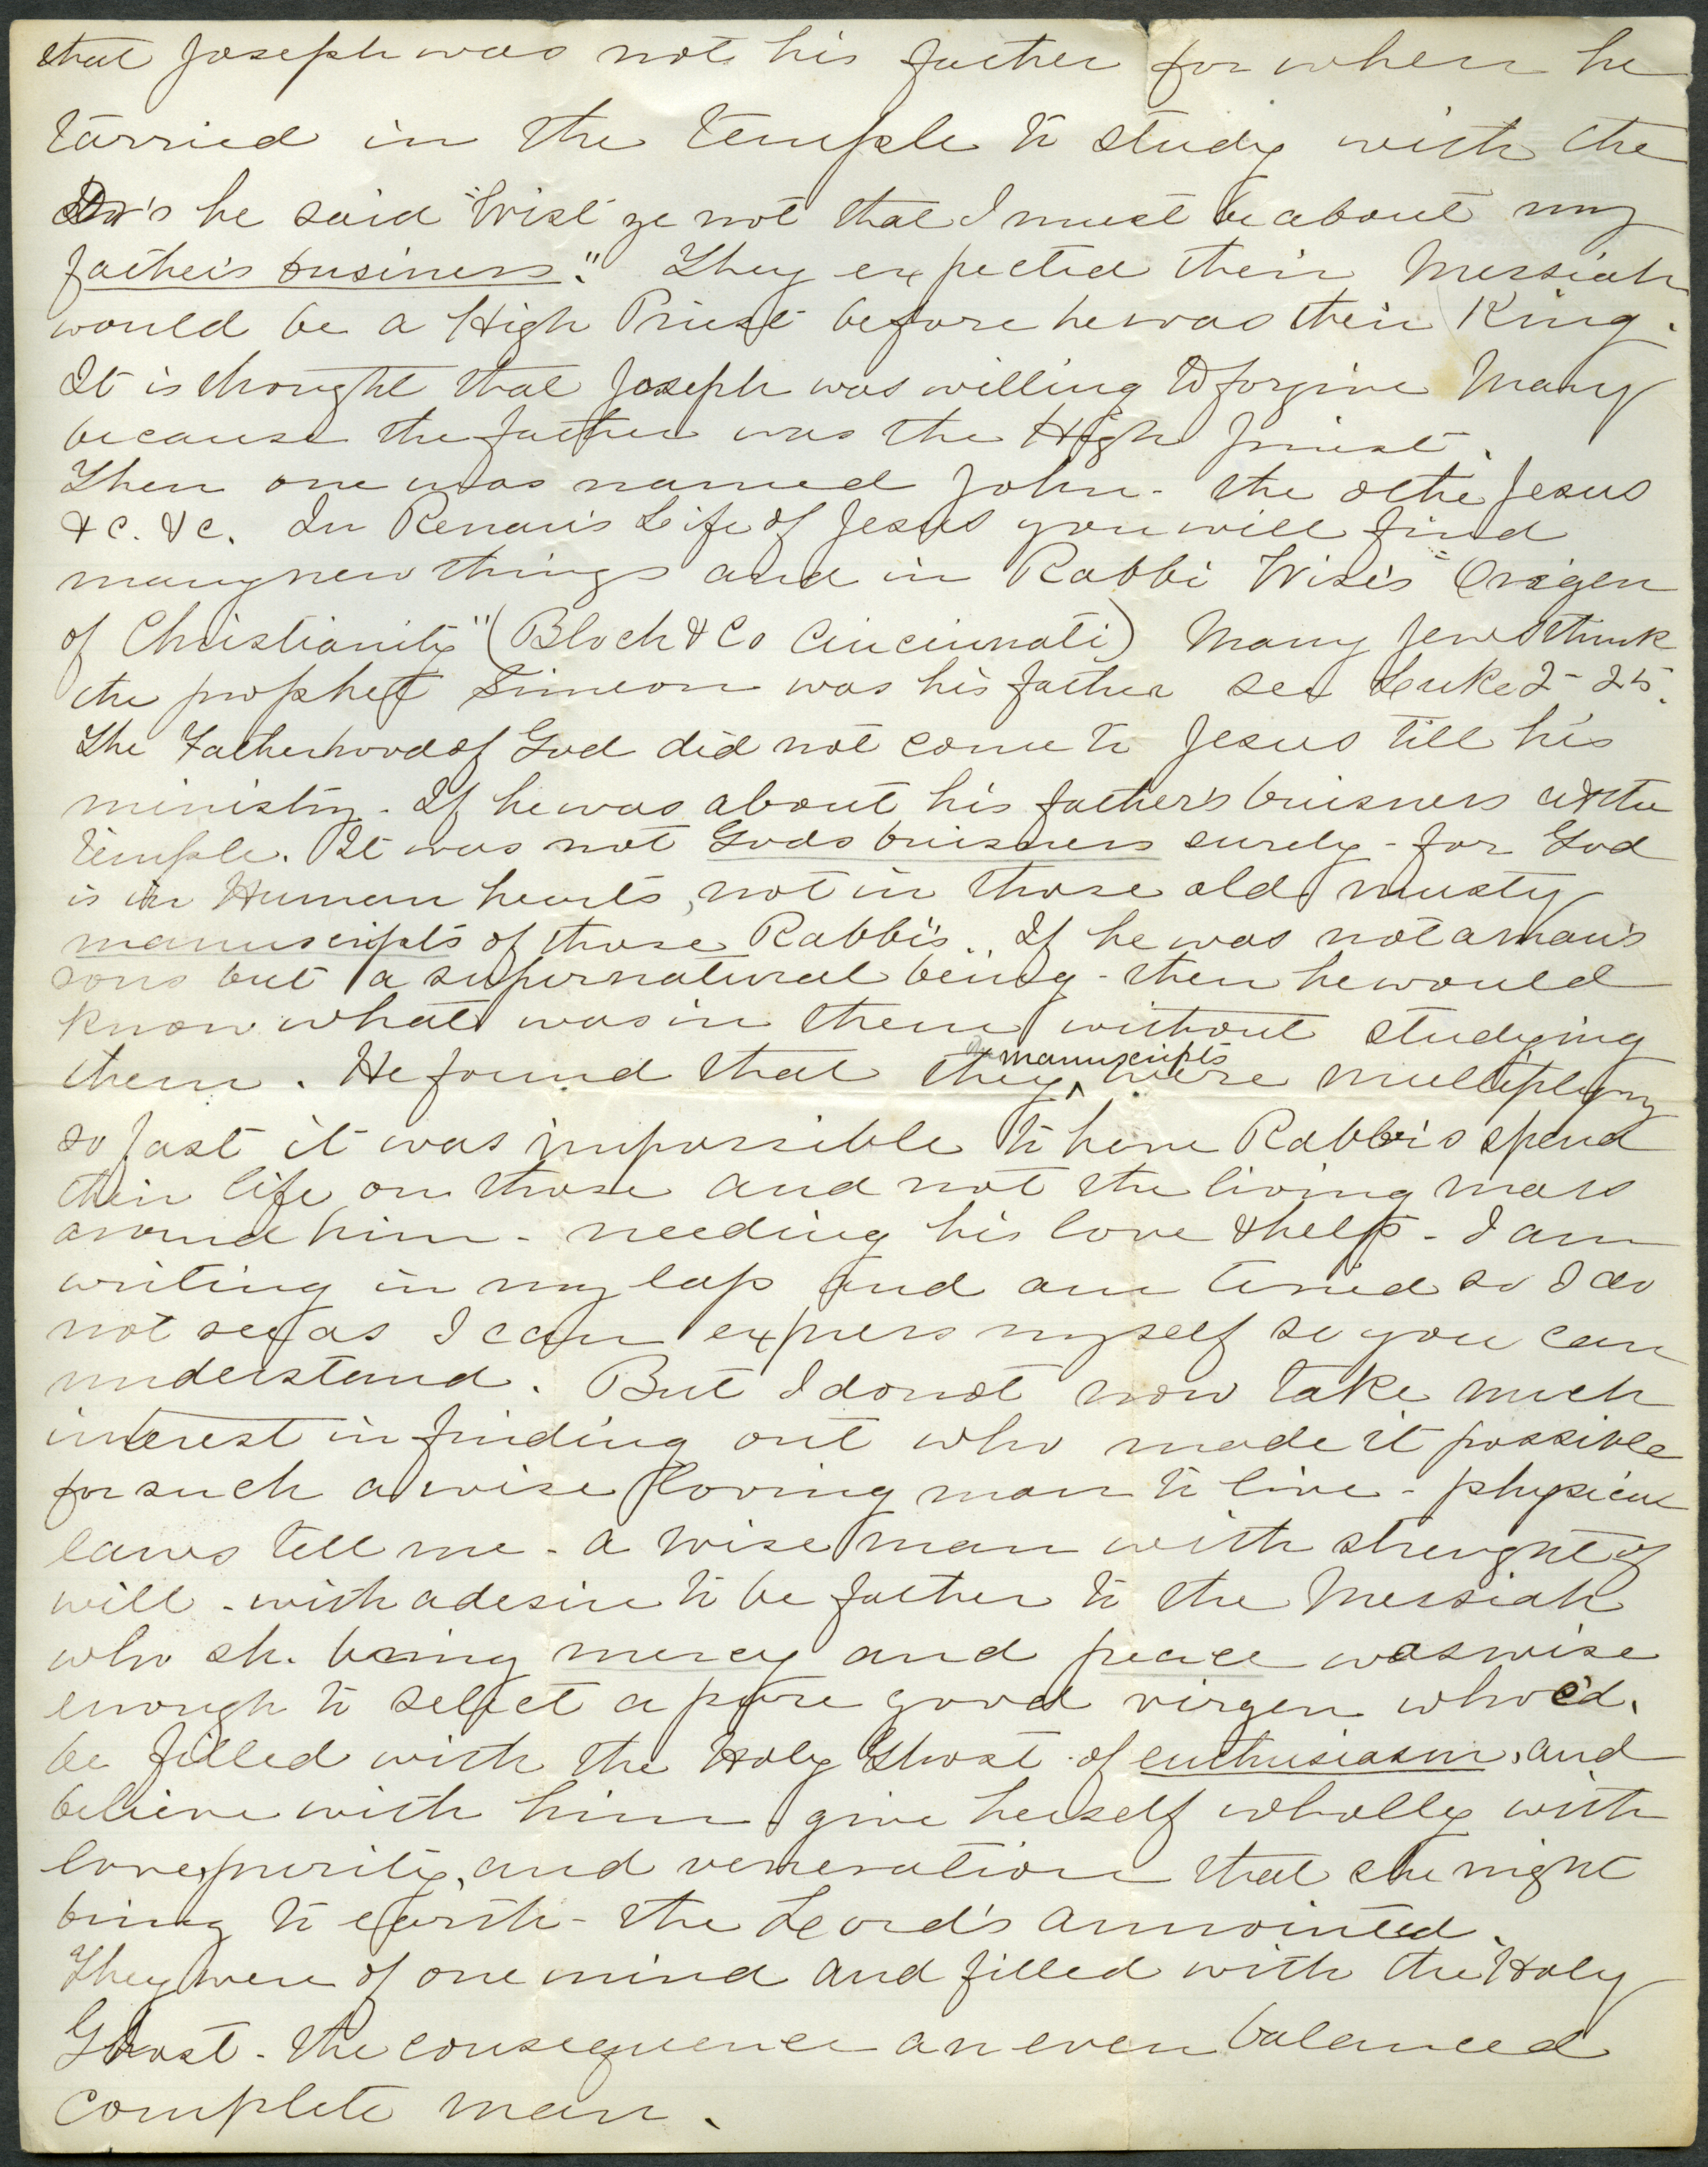 that Joseph was not his father for when he
tarried in the temple to study with the
Dr's he said "Wist ye not that I must be about my
father's business." They expected their Messiah
would be a High Priest before he was their King.
It is thought that Joseph was willing to forgive Mary
because the father was the High Priest.
Then one was named John - the othe Jesus
&c. &c. In Renan's Life of Jesus you will find
many new things and in Rabbi Wise's "Origen
of Christianity" (Bloch & Co Cincinnati) Many Jews think
the prophet Simeon was his father see Luke 2 - 25.
The Fatherhood of God did not come to Jesus till his
ministry - If he was about his father's buisness at the
temple. It was not Gods buisness surely - for God
is in Human hearts, not in those old musty
manuscripts of those Rabbi's. If he was not a man's
sons but a supernatural being - then he would
know what was in them without studying
them. He found that they manuscripts were multiplying
so fast it was impossible to have Rabbi's spend
their life on those and not the living mass
around him - needing his love & help - I am
writing in my lap and am tired so I do
not see as I can express myself so you can
understand. But I do not now take much
interest in finding out who made it possible
for such a wise loving man to live - physical
laws tell me - a wise man with strenght of
will - with a desire to be father to the Messiah
who sh. bring mercy and peace was wise
enough to select a pure good virgen who c'd.
be filled with the Holy Ghost - of enthusiasm, and
believe with him give herself wholly with
love, purity, and veneration that she might
bring to earth - the Lord's annointed.
They were of one mind and filled with the Holy
Ghost - the consequence an even balanced
complete man.